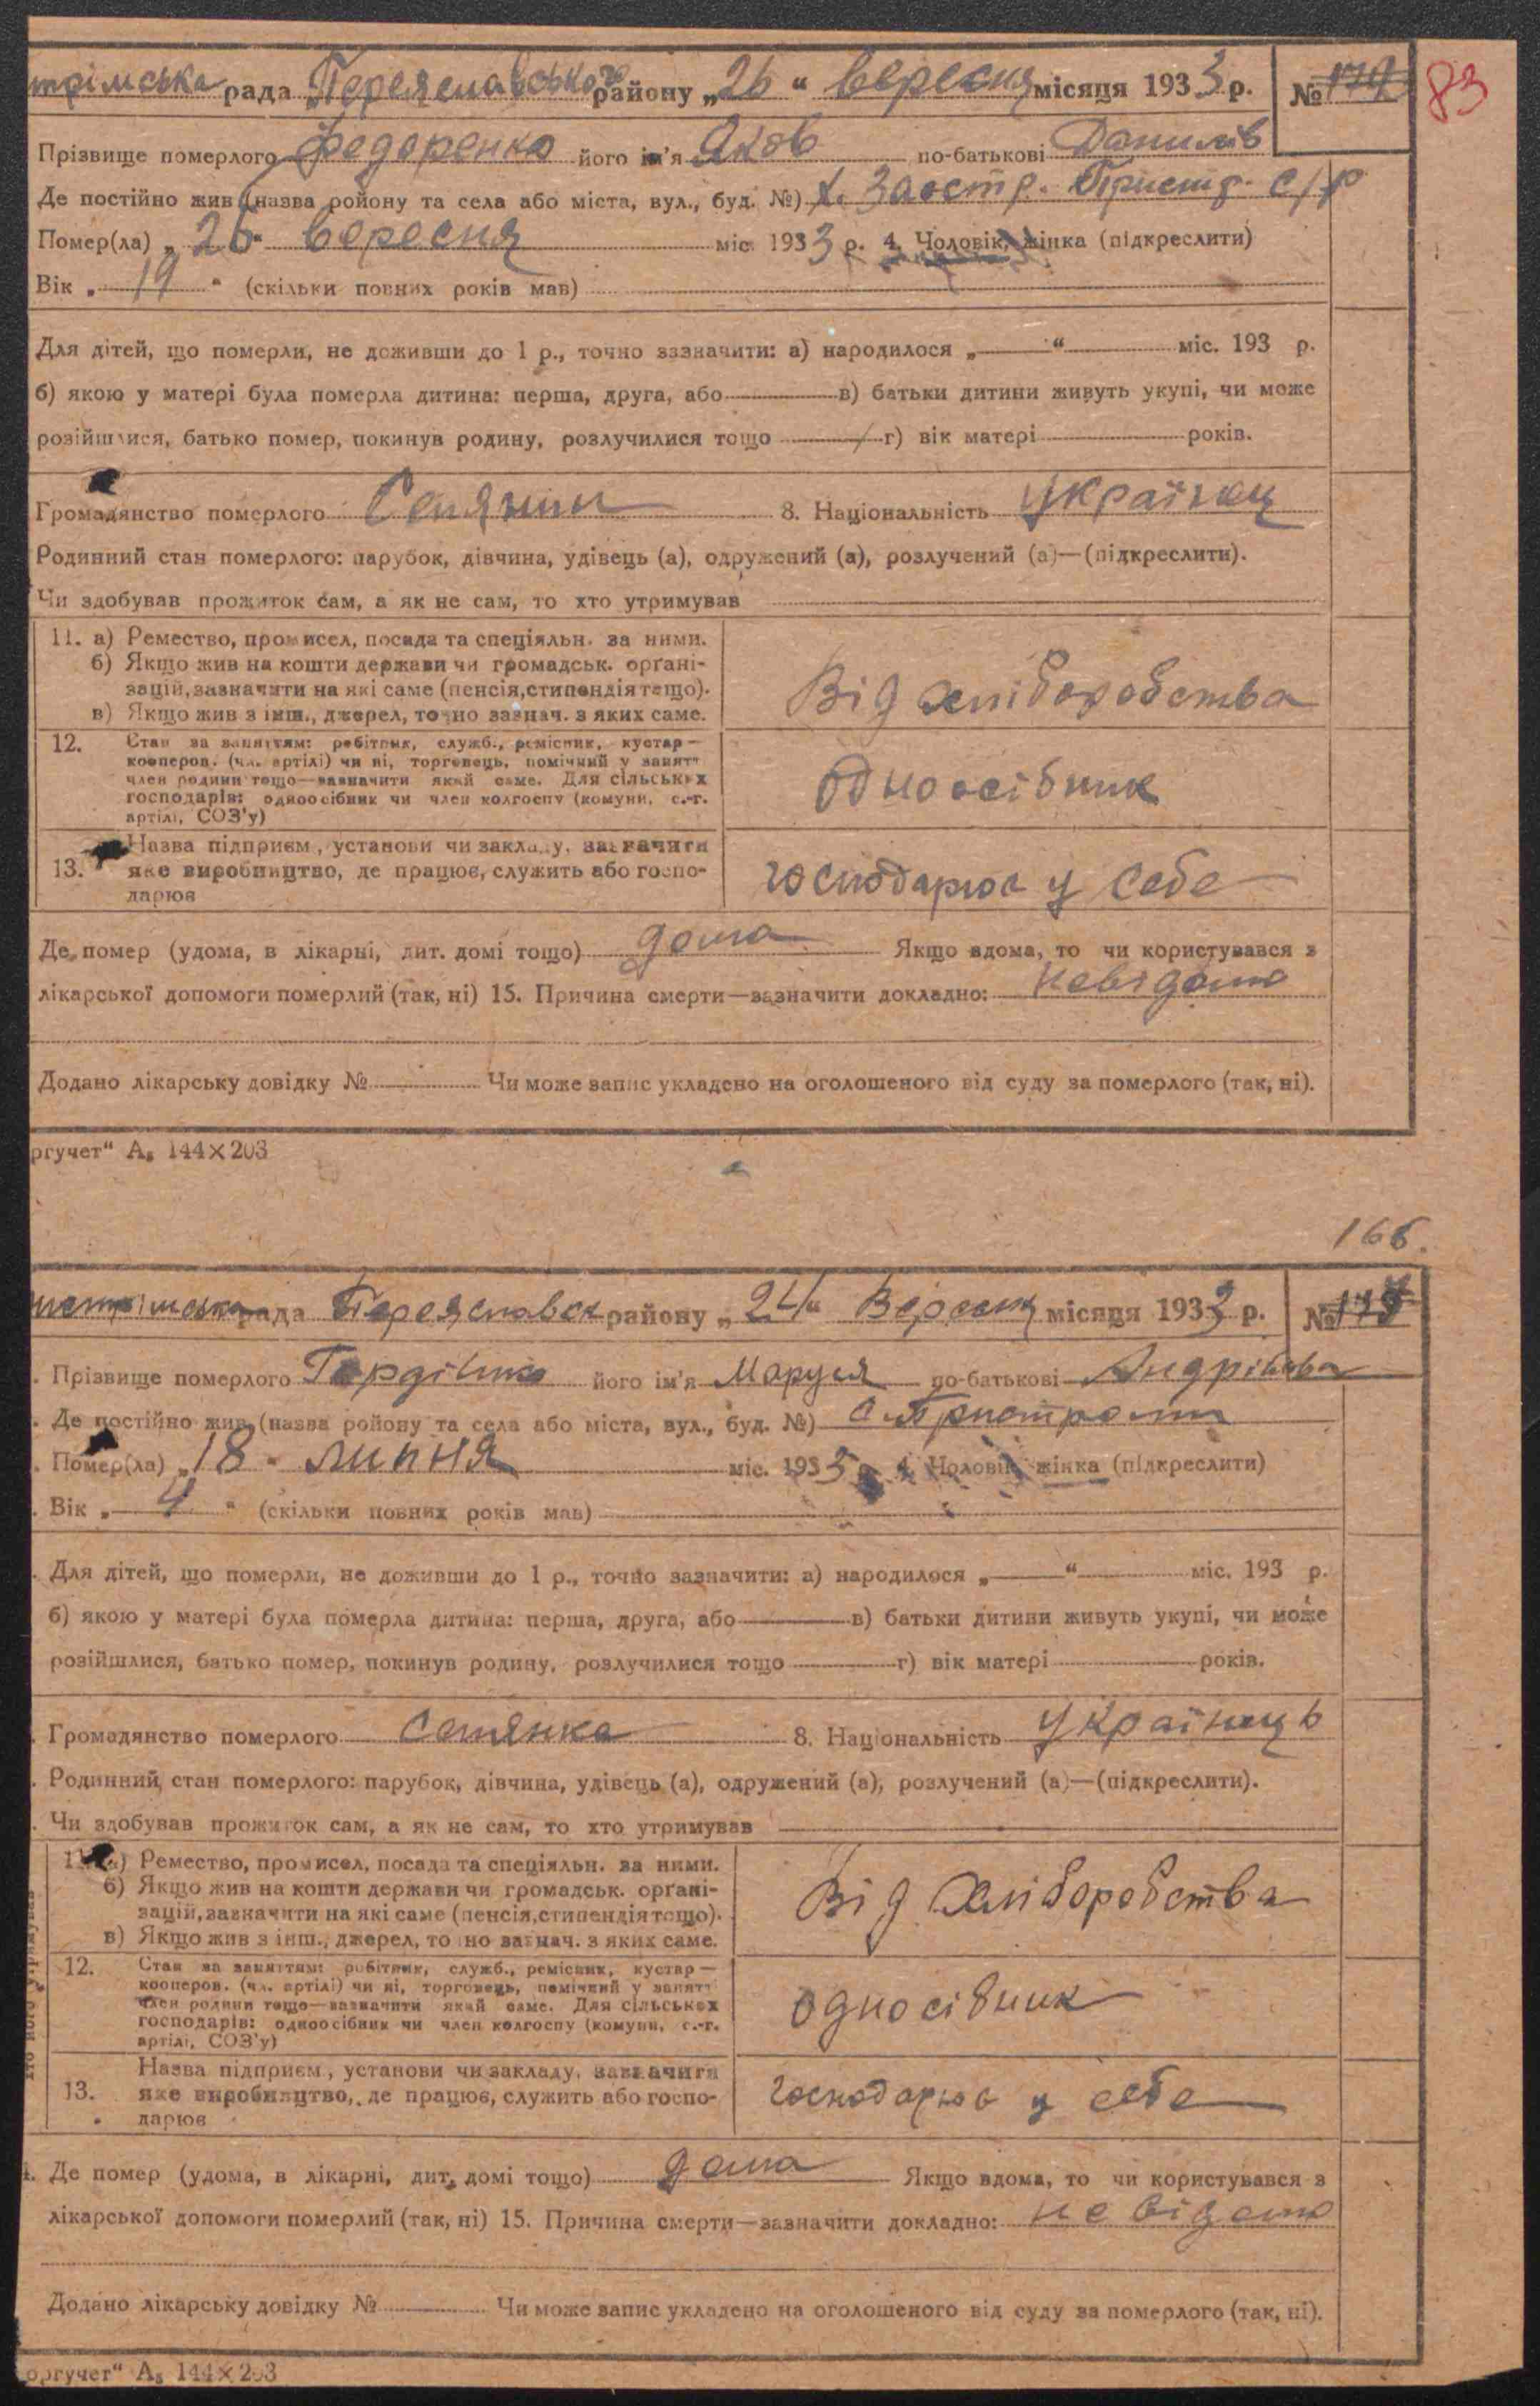 трімська рада Переяславського району „26“ вересня місяця 1933 р. №
83
Прізвище померлого Федоренко його ім'я Яков по-батькові Данилів
Де постійно жив (назва ройону та села або міста, вул., буд. №) х. Заостр. Пристр. с/р
Помер(ла) „26“ вересня міс. 1933 р. 4. Чоловік, жінка (підкреслити)
Вік „19“ (скільки повних років мав)
Для дітей, що померли, не доживши до 1 р., точно зазначити: а) народилося „—“ міс. 193 р.
б) якою у матері була померла дитина: перша, друга, або — в) батьки дитини живуть укупі, чи може
розійшлися, батько помер, покинув родину, розлучилися тощо — г) вік матері років.
Громадянство померлого Селянин 8. Національність Українец
Родинний стан померлого: парубок, дівчина, удівець (а), одружений (а), розлучений (а)—(підкреслити).
Чи здобував прожиток сам, а як не сам, то хто утримував
11. а) Ремество, промисел, посада та спеціяльн. за ними.
б) Якщо жив на кошти держави чи громадськ. орґані-
зацій, зазначити на які саме (пенсія, стипендія тощо).
в) Якщо жив з інш., джерел, точно зазнач. з яких саме.
Від хліборобства
12. Стан за заняттям: робітник, служб., ремісник, кустар—
кооперов. (чл. артілі) чи ні, торговець, помічний у занятт
член родини тощо—зазначити який саме. Для сільських
господарів: одноосібник чи член колгоспу (комуни, с.-г.
артілі, СОЗ'у)
одноосібник
13. Назва підприєм., установи чи закладу, зазначити
яке виробництво, де працює, служить або госпо-
дарює
господарює у себе
Де помер (удома, в лікарні, дит. домі тощо) дома Якщо вдома, то чи користувався з
лікарської допомоги померлий (так, ні) 15. Причина смерти—зазначити докладно: невідомо
Додано лікарську довідку № Чи може запис укладено на оголошеного від суду за померлого (так, ні).
ргучет“ А₅ 144×203
166.
рада Переяславск району „24“ Вересня місяця 1933 р. №
Прізвище померлого його ім'я Маруся по-батькові Андрієвна
Де постійно жив (назва ройону та села або міста, вул., буд. №) с. Пристроми
Помер(ла) „18“ липня міс. 1933 р. 4. Чоловік, жінка (підкреслити)
Вік „4“ (скільки повних років мав)
Для дітей, що померли, не доживши до 1 р., точно зазначити: а) народилося „—“ міс. 193 р.
б) якою у матері була померла дитина: перша, друга, або — в) батьки дитини живуть укупі, чи може
розійшлися, батько помер, покинув родину, розлучилися тощо — г) вік матері років.
Громадянство померлого селянка 8. Національність Українець
Родинний стан померлого: парубок, дівчина, удівець (а), одружений (а), розлучений (а)—(підкреслити).
Чи здобував прожиток сам, а як не сам, то хто утримував
11. а) Ремество, промисел, посада та спеціяльн. за ними.
б) Якщо жив на кошти держави чи громадськ. орґані-
зацій, зазначити на які саме (пенсія, стипендія тощо).
в) Якщо жив з інш., джерел, точно зазнач. з яких саме.
Від хліборобства
12. Стан за заняттям: робітник, служб., ремісник, кустар—
кооперов. (чл. артілі) чи ні, торговець, помічний у занятт
член родини тощо—зазначити який саме. Для сільських
господарів: одноосібник чи член колгоспу (комуни, с.-г.
артілі, СОЗ'у)
односібник
13. Назва підприєм., установи чи закладу, зазначити
яке виробництво, де працює, служить або госпо-
дарює
господарює у себе
Де помер (удома, в лікарні, дит. домі тощо) дома Якщо вдома, то чи користувався з
лікарської допомоги померлий (так, ні) 15. Причина смерти—зазначити докладно: не відомо
Додано лікарську довідку № Чи може запис укладено на оголошеного від суду за померлого (так, ні).
оргучет“ А₅ 144×203